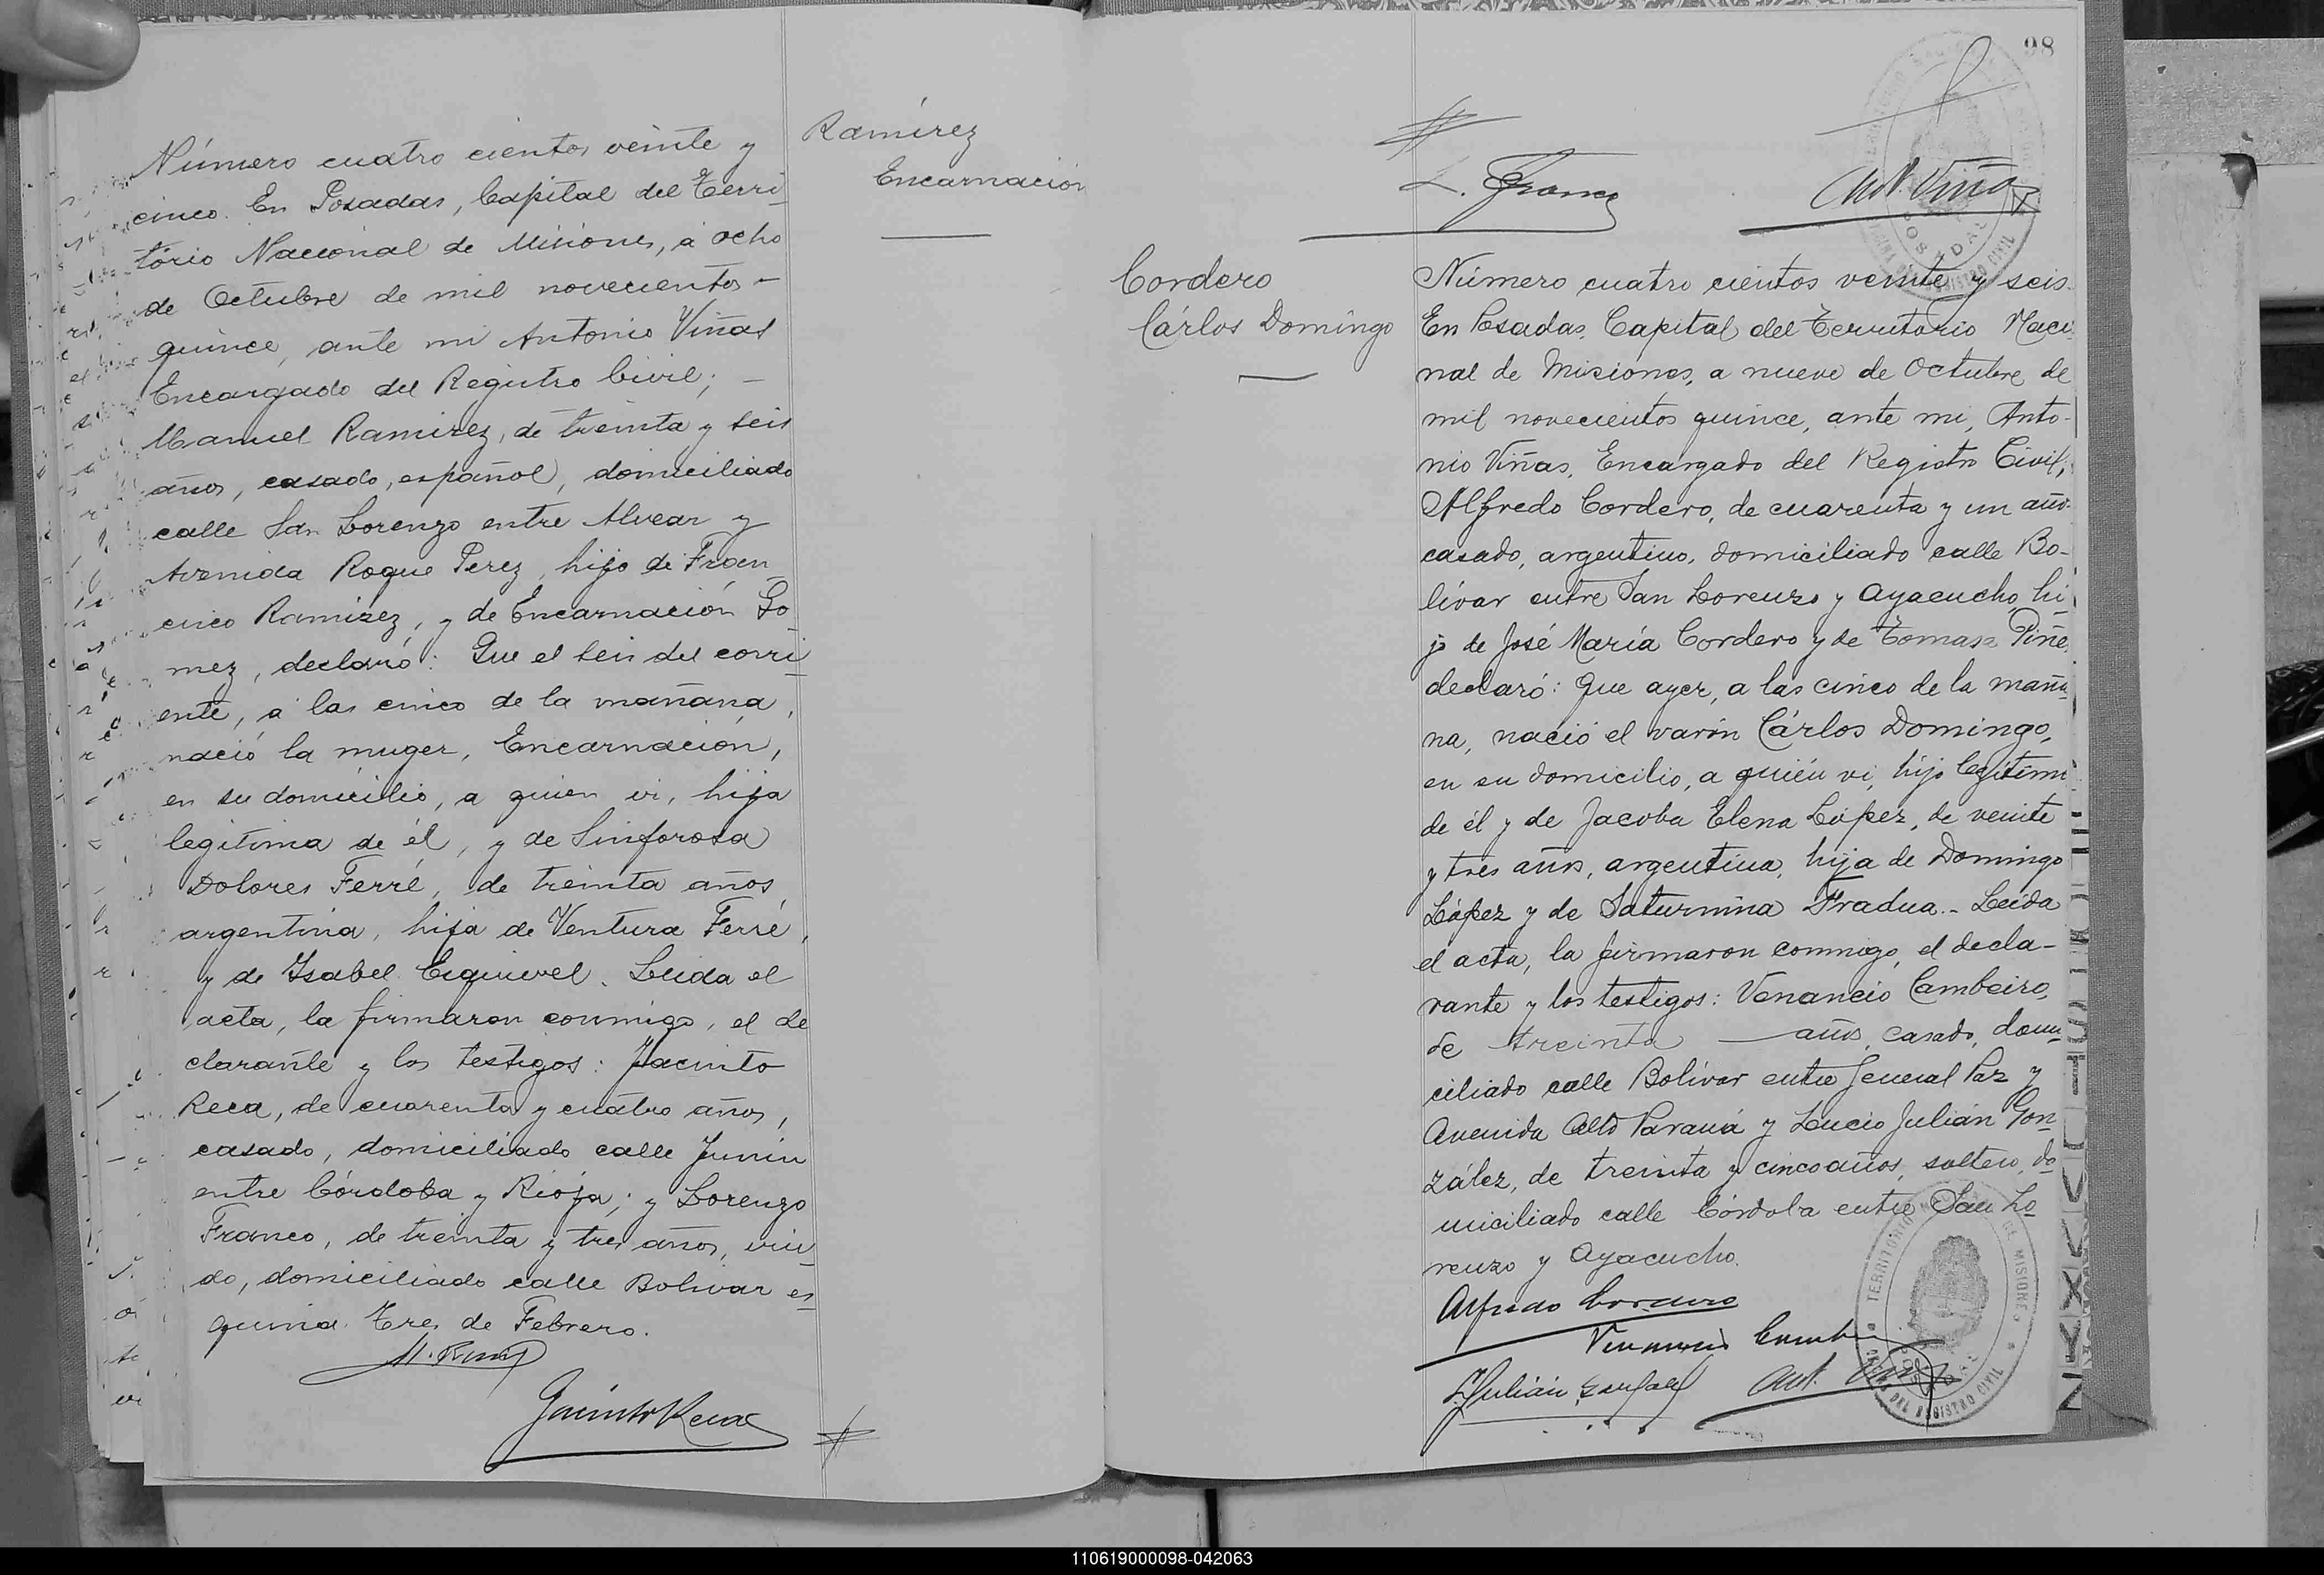 Ramírez
Encarnación
Número cuatro cientos veinte y
cinco. En Posadas, Capital del Terri-
torio Nacional de Misiones, á ocho
de Octubre de mil novecientos -
quince, ante mi Antonio Viñas
Encargado del Registro Civil; -
Manuel Ramirez, de treinta y seis
años, casado, español, domiciliado
calle San Lorenzo entre Alvear y
Avenida Roque Perez, hijo de Fran
cisco Ramirez, y de Encarnación Go-
mez, declaró: Que el seis del corri-
ente, á las cinco de la mañana,
nació la muger, Encarnación,
en su domicilio, a quien vi, hija
legitima de él, y de Sinforosa
Dolores Ferré, de treinta años
argentina, hija de Ventura Ferré,
y de Isabel Esquivel. Leida el
acta, la firmaron conmigo, el de
clarante y los testigos: Jacinto
Reca, de cuarenta y cuatro años,
casado, domiciliado calle Junin
entre Córdoba y Rioja; y Lorenzo
Franco, de treinta y tres años, viu-
do, domiciliado calle Bolivar es-
quina Tres de Febrero.
Jacinto Reca
98
L. Franco
Ant. Viñas
Cordero
Cárlos Domingo
Número cuatro cientos veinte y seis.
En Posadas, Capital del Territorio Naci
nal de Misiones, a nueve de Octubre de
mil novecientos quince, ante mi, Anto-
nio Viñas, Encargado del Registro Civil,
Alfredo Cordero, de cuarenta y un año
casado, argentino, domiciliado calle Bo-
lívar entre San Lorenzo y Ayacucho, hi
jo de José María Cordero y de Tomasa Piñe
declaró: Que ayer, a las cinco de la maña
na, nació el varón Cárlos Domingo,
en su domicilio, a quién vi, hijo legítimo
de él y de Jacoba Elena López, de veinte
y tres años, argentina, hija de Domingo
López y de Saturnina Fradua.- Leída
el acta, la firmaron conmigo, el decla-
rante y los testigos: Venancio Cambeiro,
de treinta — años, casado, domi
ciliado calle Bolívar entre General Paz y
Avenida Alto Paraná y Lucio Julián Gon
zález, de treinta y cinco años, soltero, do
miciliado calle Córdoba entre San Lo
renzo y Ayacucho.
Alfredo Cordero
Venancio
L. Julián González
Ant. Viñas
TERRITORIO DE MISIONES
DEL REGISTRO CIVIL
110619000098-042063